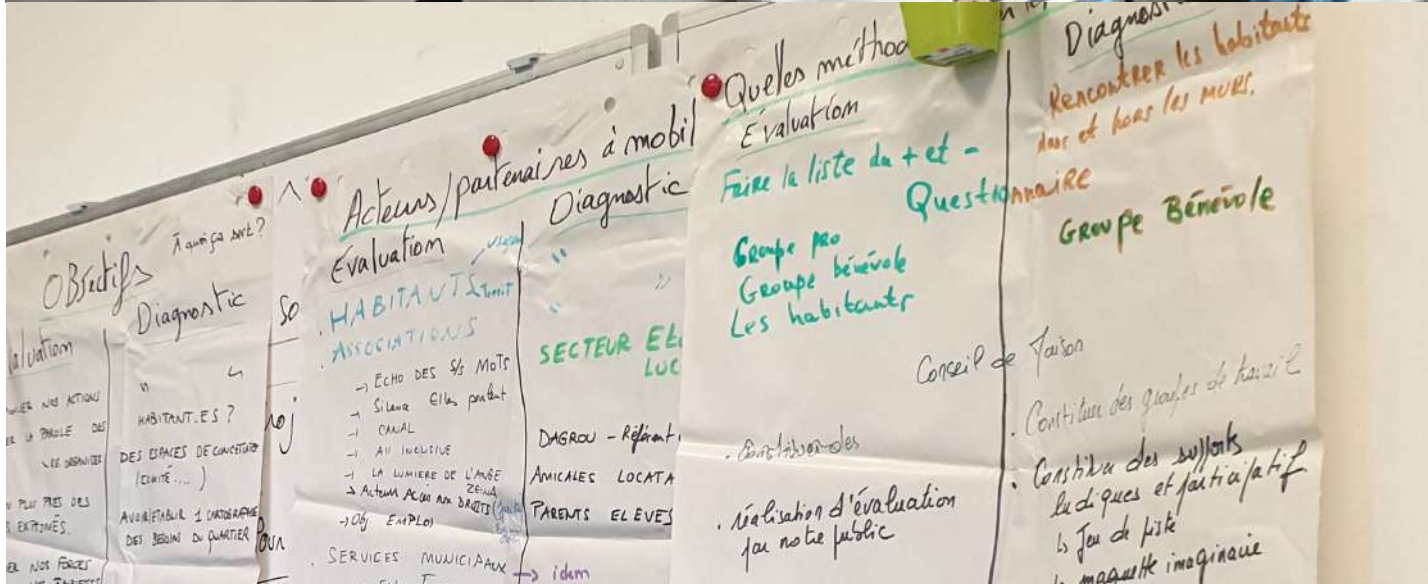 Objectifs
À quoi ça sert ?
valuation
NOS ACTIONS
LA PAROLE DES
PLUS PRES DES
EXPRIMÉS.
NOS FORCES
Diagnostic
"
HABITANT.ES ?
DES ESPACES DE CONCERTATION
(COMITÉ....)
AVOIR/ETABLIR 1 CARTOGRAPHIE
DES BESOINS DU QUARTIER
So
oj
Acteurs/partenaires à mobil
Evaluation
. HABITANTS
. ASSOCIATIONS
→ ECHO DES S/S MOTS
→ Silence Elles parlent
→ CANAL
→ All INCLUSIVE
→ LA LUMIERE DE L'ANGE
ZEINA
→ Acteurs Acces aux DROITS
→ Obj EMPLOI
. SERVICES MUNICIPAUX
→ idem
Diagnostic
" "
SECTEUR EL
LOC
DAGROU - Référent
AMICALES LOCATA
PARENTS ELEVES
Queles méthod
Evaluation
Faire la liste du + et -
Questionnaire
Groupe pro
Groupe bénévole
Les habitants
Conseil de Maison
. Constitution des
. réalisation d'évaluation
par notre public
Diagnosti
Rencontrer les habitants
dans et hors les murs.
Groupe Bénévole
. Constituer des groupes de travail
. Constituer des supports
ludiques et participatif
↳ Jeu de piste
maquette imaginaire